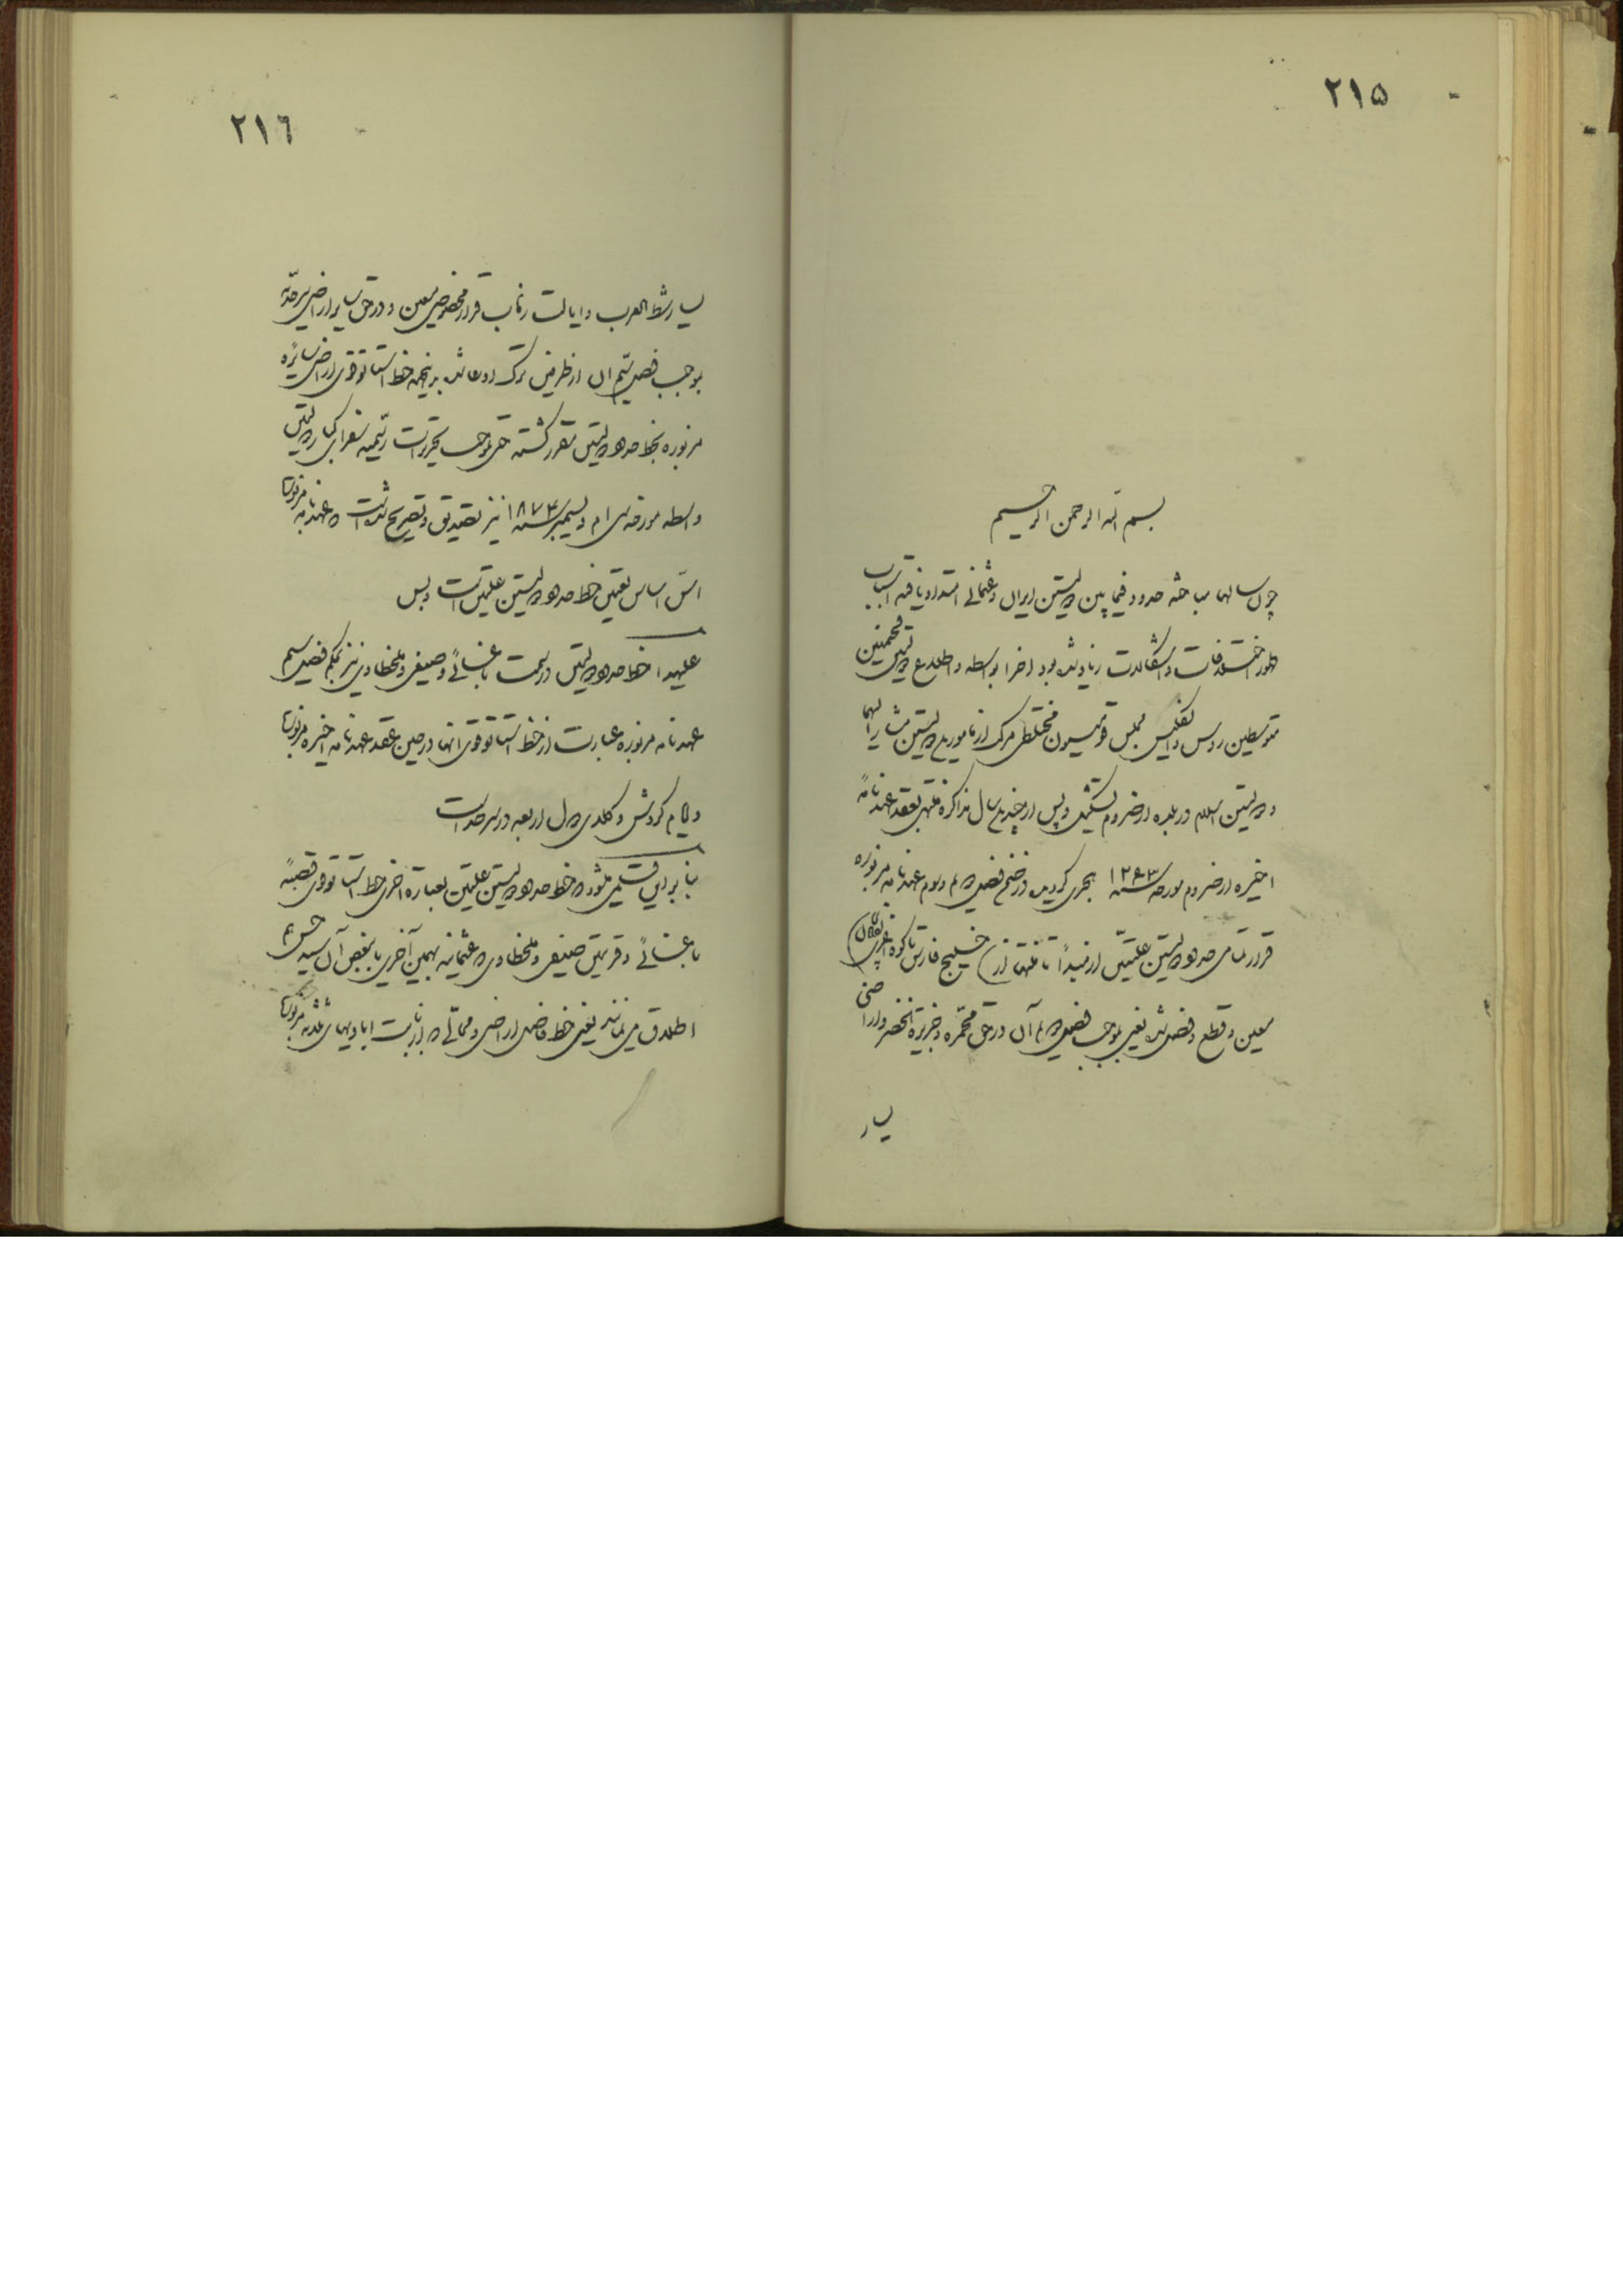 ٢١۵
بسم الله الرحمن الرحیم
چون سالها مباحثه حدود فیما بین دولتین ایران و عثمانی امتداد یافته اسباب
ظهور اختلافات و اشکالات زیاد شده بود اخرا بواسطه و اطلاع دولتین فخیمتین
متوسطین روس و انگلیس مجلس قومسیون مختلطی مرکب از مامورین دولتین مشار الیهما
و دولتین اسلام در بلده ارضروم تشکیل و پس از چندین سال مذاکره منتهی بعقد عهدنامهٔ
اخیره ارضروم مورخه سنه ١٢٦٣ هجری گردید در ضمن فصل دویم و سوم عهدنامه مزبوره
قرار تمامی حدود دولتین علیتین از مبدأ تا منتها (از خلیج فارس تا کوه اغری)
معین و قطع و فصل شد یعنی بموجب فصل دویم آن در حق محمره و جزیرة الخضر و اراضی
یسار
٢١٦
یسار شط العرب و ایالت زهاب قرار مخصوصی معین و در حق سایر اراضی سرحدیه
بموجب فصل سیم آن از طرفین ترک ادعا شده در نتیجه خط استاتوقوی اراضی سایرهٔ
مزبوره بخط حدود دولتین مقرر گشته حتی بموجب تحریرات رسمیه سفرای کبار دولتین
واسطه مورخه سی ام دیسمبر سنه ١٨٧٣ نیز تصدیق و تصریح شده است که عهدنامه مزبوره
اسّ اساس تعیین خط حدود دولتین علیتین است و بس
علیهذا خط حدود دولتین در سمت باغسائی و صیفی و ملخطاوی نیز بحکم فصل سیم
عهدنامه مزبوره عبارت از خط استاتوقوی انها در حین عقد عهدنامه اخیره مزبوره
و قیام و کلای دول اربعه در سرحد است
بنا بر این تسلیم میشود که خط حدود دولتین علیتین بعبارة اخری خط استاتوقوی قصبهٔ
باغسائی و قریتین صیفی و ملخطاوی که عثمانیه بهمین آخری یا بعض آن سید حسن هم
اطلاق می نمایند یعنی خط فاصل اراضی و محالی که از بابت ابادیهای ثلاثه مزبوره